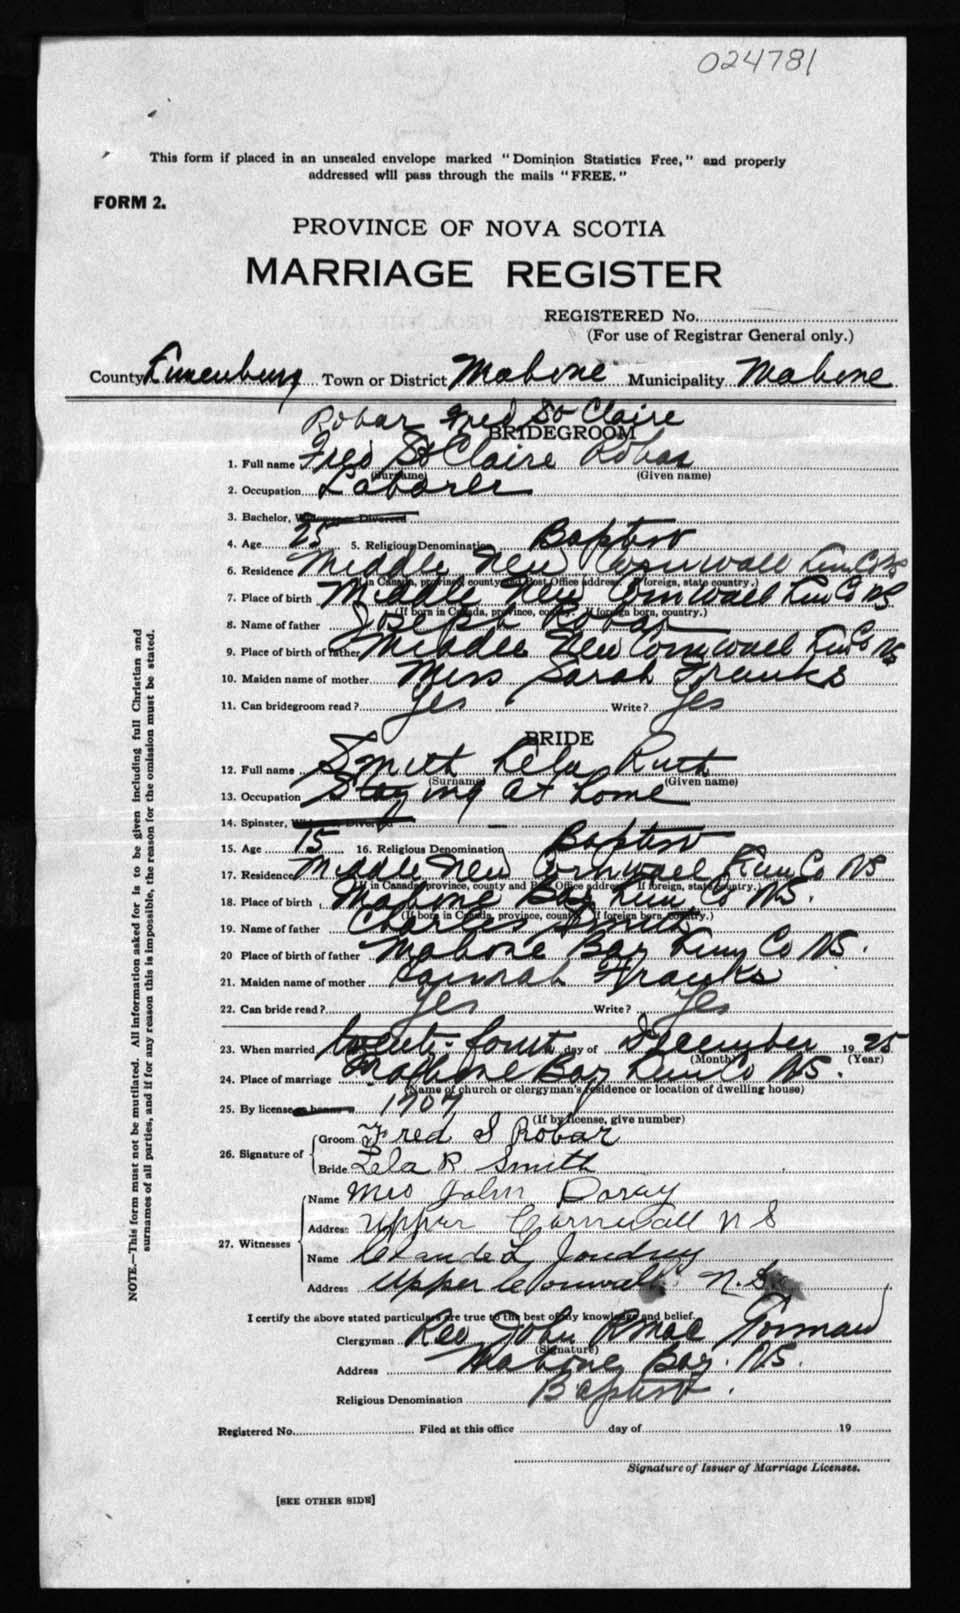 024781
This form if placed in an unsealed envelope marked "Dominion Statistics Free," and properly
addressed will pass through the mails "FREE."
FORM 2.
PROVINCE OF NOVA SCOTIA
MARRIAGE REGISTER
REGISTERED No.
(For use of Registrar General only.)
County Lunenburg Town or District Mahone Municipality Mahone
Robar Fred St Claire
BRIDEGROOM
1. Full name Fred St Claire Robar
(Surname) (Given name)
2. Occupation Laborer
3. Bachelor, Widower or Divorced
4. Age 25 5. Religious Denomination Baptist
6. Residence Middle New Cornwall Lun Co NS
(If in Canada, province, county and Post Office address. If foreign, state country.)
7. Place of birth Middle New Cornwall Lun Co NS
(If born in Canada, province, county. If foreign born, country.)
8. Name of father Joseph Robar
9. Place of birth of father Middle New Cornwall Lun Co NS
10. Maiden name of mother Miss Sarah Franks
11. Can bridegroom read? Yes Write? Yes
BRIDE
12. Full name Smith Lela Ruth
(Surname) (Given name)
13. Occupation Staying at home
14. Spinster, Widow or Divorced
15. Age 15 16. Religious Denomination Baptist
17. Residence Middle New Cornwall Lun Co NS
(If in Canada, province, county and Post Office address. If foreign, state country.)
18. Place of birth Mahone Bay Lun Co NS.
(If born in Canada, province, county. If foreign born, country.)
19. Name of father Charles Smith
20 Place of birth of father Mahone Bay Lun Co NS.
21. Maiden name of mother Hannah Franks
22. Can bride read? Yes Write? Yes
23. When married twenty-fourth day of December 1925
(Month) (Year)
24. Place of marriage Mahone Bay Lun Co NS.
(Name of church or clergyman's residence or location of dwelling house)
25. By license or banns 1707
(If by license, give number)
26. Signature of Groom Fred S Robar
Bride Lela R Smith
27. Witnesses Name Mrs John Dorey
Address Upper Cornwall N S
Name Joudrey
Address Upper Cornwall N.S.
I certify the above stated particulars are true to the best of my knowledge and belief.
Clergyman Rev John
(Signature)
Address Mahone Bay. NS.
Religious Denomination Baptist.
Registered No. Filed at this office day of 19
Signature of Issuer of Marriage Licenses.
[SEE OTHER SIDE]
NOTE.—This form must not be mutilated. All information asked for is to be given including full Christian and
surnames of all parties, and if for any reason this is impossible, the reason for the omission must be stated.